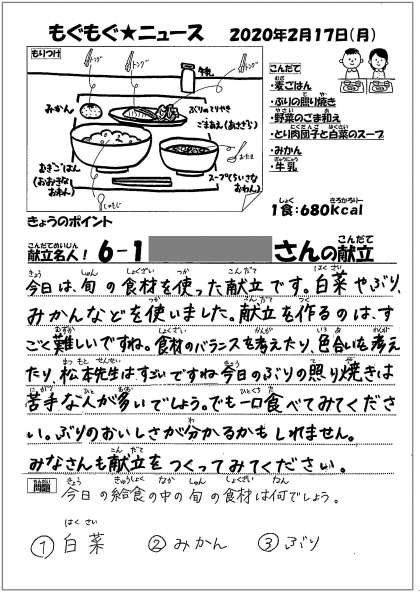 もぐもぐ★ニュース 2020年2月17日(月)
もりつけ
トング
トング
牛乳
トング
みかん
ぶりのてりやき
ごまあえ(あさざら)
むぎごはん
(おおきなおわん)
しゃもじ
おたま
スープ(ちいさなおわん)
こんだて
・麦ごはん
・ぶりの照り焼き
・野菜のごま和え
・とり肉団子と白菜のスープ
・みかん
・牛乳
1食:680kcal
きょうのポイント
献立名人! 6-1 さんの献立
今日は、旬の食材を使った献立です。白菜やぶり、
みかんなどを使いました。献立を作るのは、す
ごく難しいですね。食材のバランスを考えたり、色合いを考え
たり、松本先生はすごいですね。今日のぶりの照り焼きは
苦手な人が多いでしょう。でも一口食べてみてくださ
い。ぶりのおいしさが分かるかもしれません。
みなさんも献立をつくってみてください。
問題 今日の給食の中の旬の食材は何でしょう。
①白菜 ②みかん ③ぶり